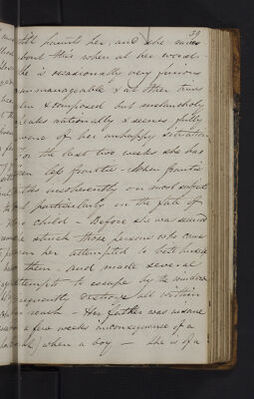 39
still haunts her, and she raves
about this when at her worst.
She is occasionally very furious
unmanageable & at other times
calm & composed but melancholy
talks rationally & seems fully
aware of her unhappy situation
For the last two weeks she has
been less frantic - When frantic
talks incoherently on most subjects
particularly on the fate of
child - Before she was secured
she struck those persons who came
near her attempted to bite
them, and made several
attempts to escape by the window
frequently destroys all within
reach - Her father was insane
a few weeks inconsequence of a
when a boy - She is of a